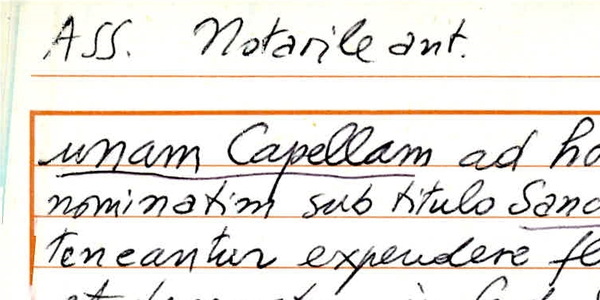 ASS. Notarile ant.
unam Capellam ad ho
nominatim sub titulo Sanc
teneantur expendere fl